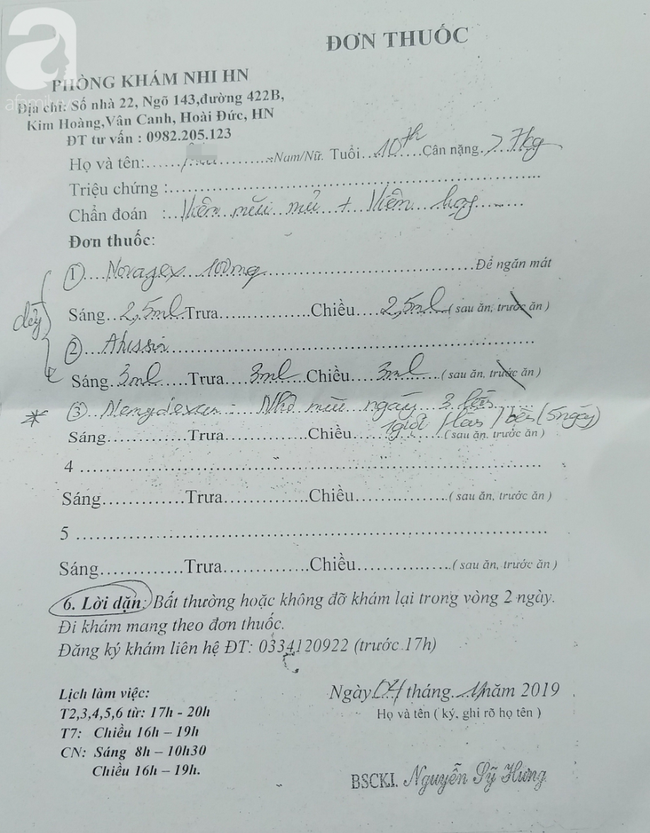 a
afamily
ĐƠN THUỐC
PHÒNG KHÁM NHI HN
Địa chỉ: Số nhà 22, Ngõ 143,đường 422B,
Kim Hoàng,Vân Canh, Hoài Đức, HN
ĐT tư vấn : 0982.205.123
Họ và tên:...... Nam/Nữ. Tuổi...10th...Cân nặng: 7kg
Triệu chứng :
Chẩn đoán : Viêm mũi mủ + Viêm họng
Đơn thuốc:
① Novagex 100mg Để ngăn mát
Sáng 2,5ml Trưa Chiều 2,5ml ( sau ăn, trước ăn )
②
Sáng 3ml Trưa 3ml Chiều 3ml ( sau ăn, trước ăn )
* ③ Nhỏ mũi ngày 3 lần
Sáng Trưa Chiều 1giọt /lần /bên (5ngày) ( sau ăn, trước ăn )
4
Sáng Trưa Chiều ( sau ăn, trước ăn )
5
Sáng Trưa Chiều ( sau ăn, trước ăn )
6. Lời dặn: Bất thường hoặc không đỡ khám lại trong vòng 2 ngày.
Đi khám mang theo đơn thuốc.
Đăng ký khám liên hệ ĐT: 0334120922 (trước 17h)
Lịch làm việc:
T2,3,4,5,6 từ: 17h - 20h
T7: Chiều 16h – 19h
CN: Sáng 8h – 10h30
Chiều 16h – 19h.
Ngày 04 tháng 11 năm 2019
Họ và tên ( ký, ghi rõ họ tên )
BSCKI. Nguyễn Sỹ Hưng